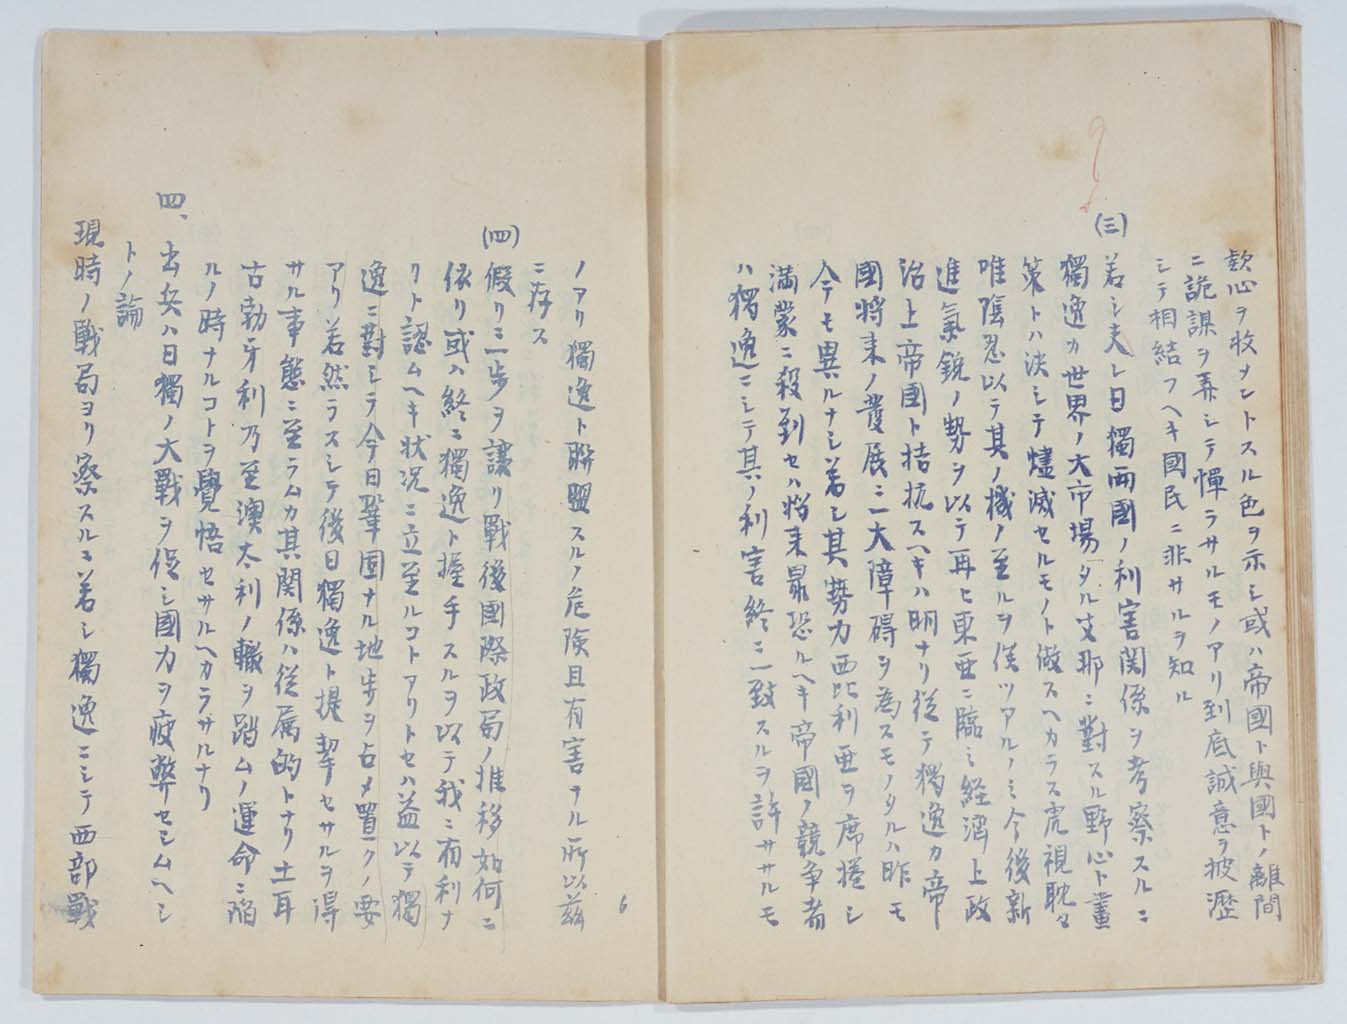 歓心ヲ收メントスル色ヲ示シ或ハ帝國ト與國トノ離間
ニ詭謀ヲ弄シテ憚ラサルモノアリ到底誠意ヲ披瀝
シテ相結フヘキ國民ニ非サルヲ知ル
(三)
若シ夫レ日獨両國ノ利害関係ヲ考察スルニ
獨逸カ世界ノ大市場タル支那ニ對スル野心ト畫
策トハ決シテ燼滅セルモノト做スヘカラス虎視眈々
唯隠忍以テ其ノ機ノ至ルヲ俟ツアルノミ今後新
進氣鋭ノ勢ヲ以テ再ヒ東亜ニ臨ミ経濟上政
治上帝國ト拮抗スヘキハ明ナリ従テ獨逸カ帝
國将来ノ發展ニ一大障碍ヲ為スモノタルハ昨モ
今モ異ルナシ若シ其勢力西比利亜ヲ席捲シ
満蒙ニ殺到セハ将来最恐ルヘキ帝國ノ競争者
ハ獨逸ニシテ其ノ利害終ニ一致スルヲ許ササルモ
ノアリ獨逸ト聯盟スルノ危険且有害ナル所以茲
ニ存ス
(四)
假リニ一歩ヲ讓リ戰後國際政局ノ推移如何ニ
依リ或ハ終ニ獨逸ト握手スルヲ以テ我ニ有利ナ
リト認ムヘキ状况ニ立至ルコトアリトセハ益以テ獨
逸ニ對シテ今日鞏固ナル地歩ヲ占メ置クノ要
アリ若然ラスシテ後日獨逸ト提挈セサルヲ得
サル事態ニ至ラムカ其関係ハ従属的トナリ土耳
古勃牙利乃至澳太利ノ轍ヲ踏ムノ運命ニ陥
ルノ時ナルコトヲ覺悟セサルヘカラサルナリ
四、出兵ハ日獨ノ大戰ヲ促シ國力ヲ疲弊セシムヘシ
トノ論
現時ノ戰局ヨリ察スルニ若シ獨逸ニシテ西部戰
6